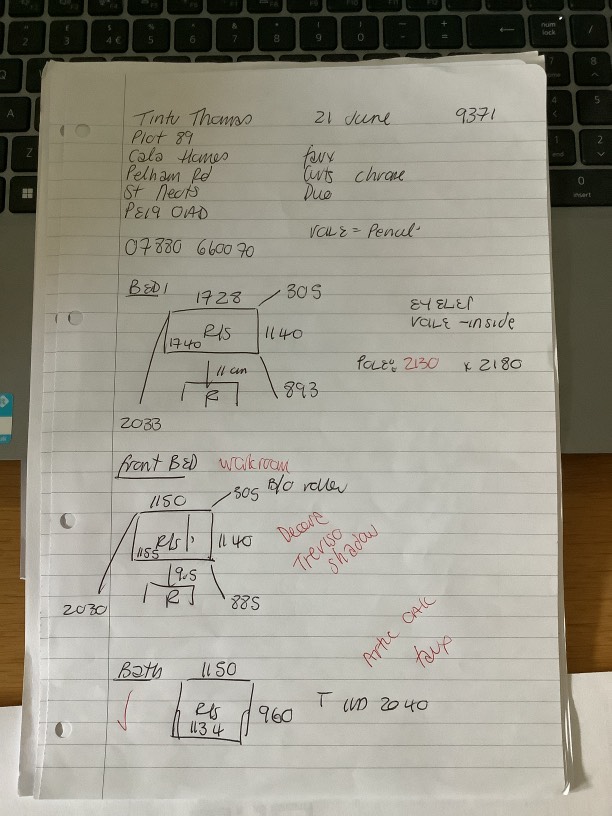 Tintu Thomas 21 June 9371
Plot 89
Cala Homes faux
Pelham Rd Curts chrome
St Neots Due
PE19 0AD
VOILE = Pencil
07880 660070
BED 1
1728 305
R/S 1140
1740
11 cm
R 893
2033
EYELET
VOILE - inside
POLE: 2130 x 2180
front BED workroom
1150 305 B/O roller
R/S 1140
1155
9.5
R 885
2030
Decora
Treviso
shadow
Artic OAK
faux
Bath 1150
R/S 960 T 2040
1134